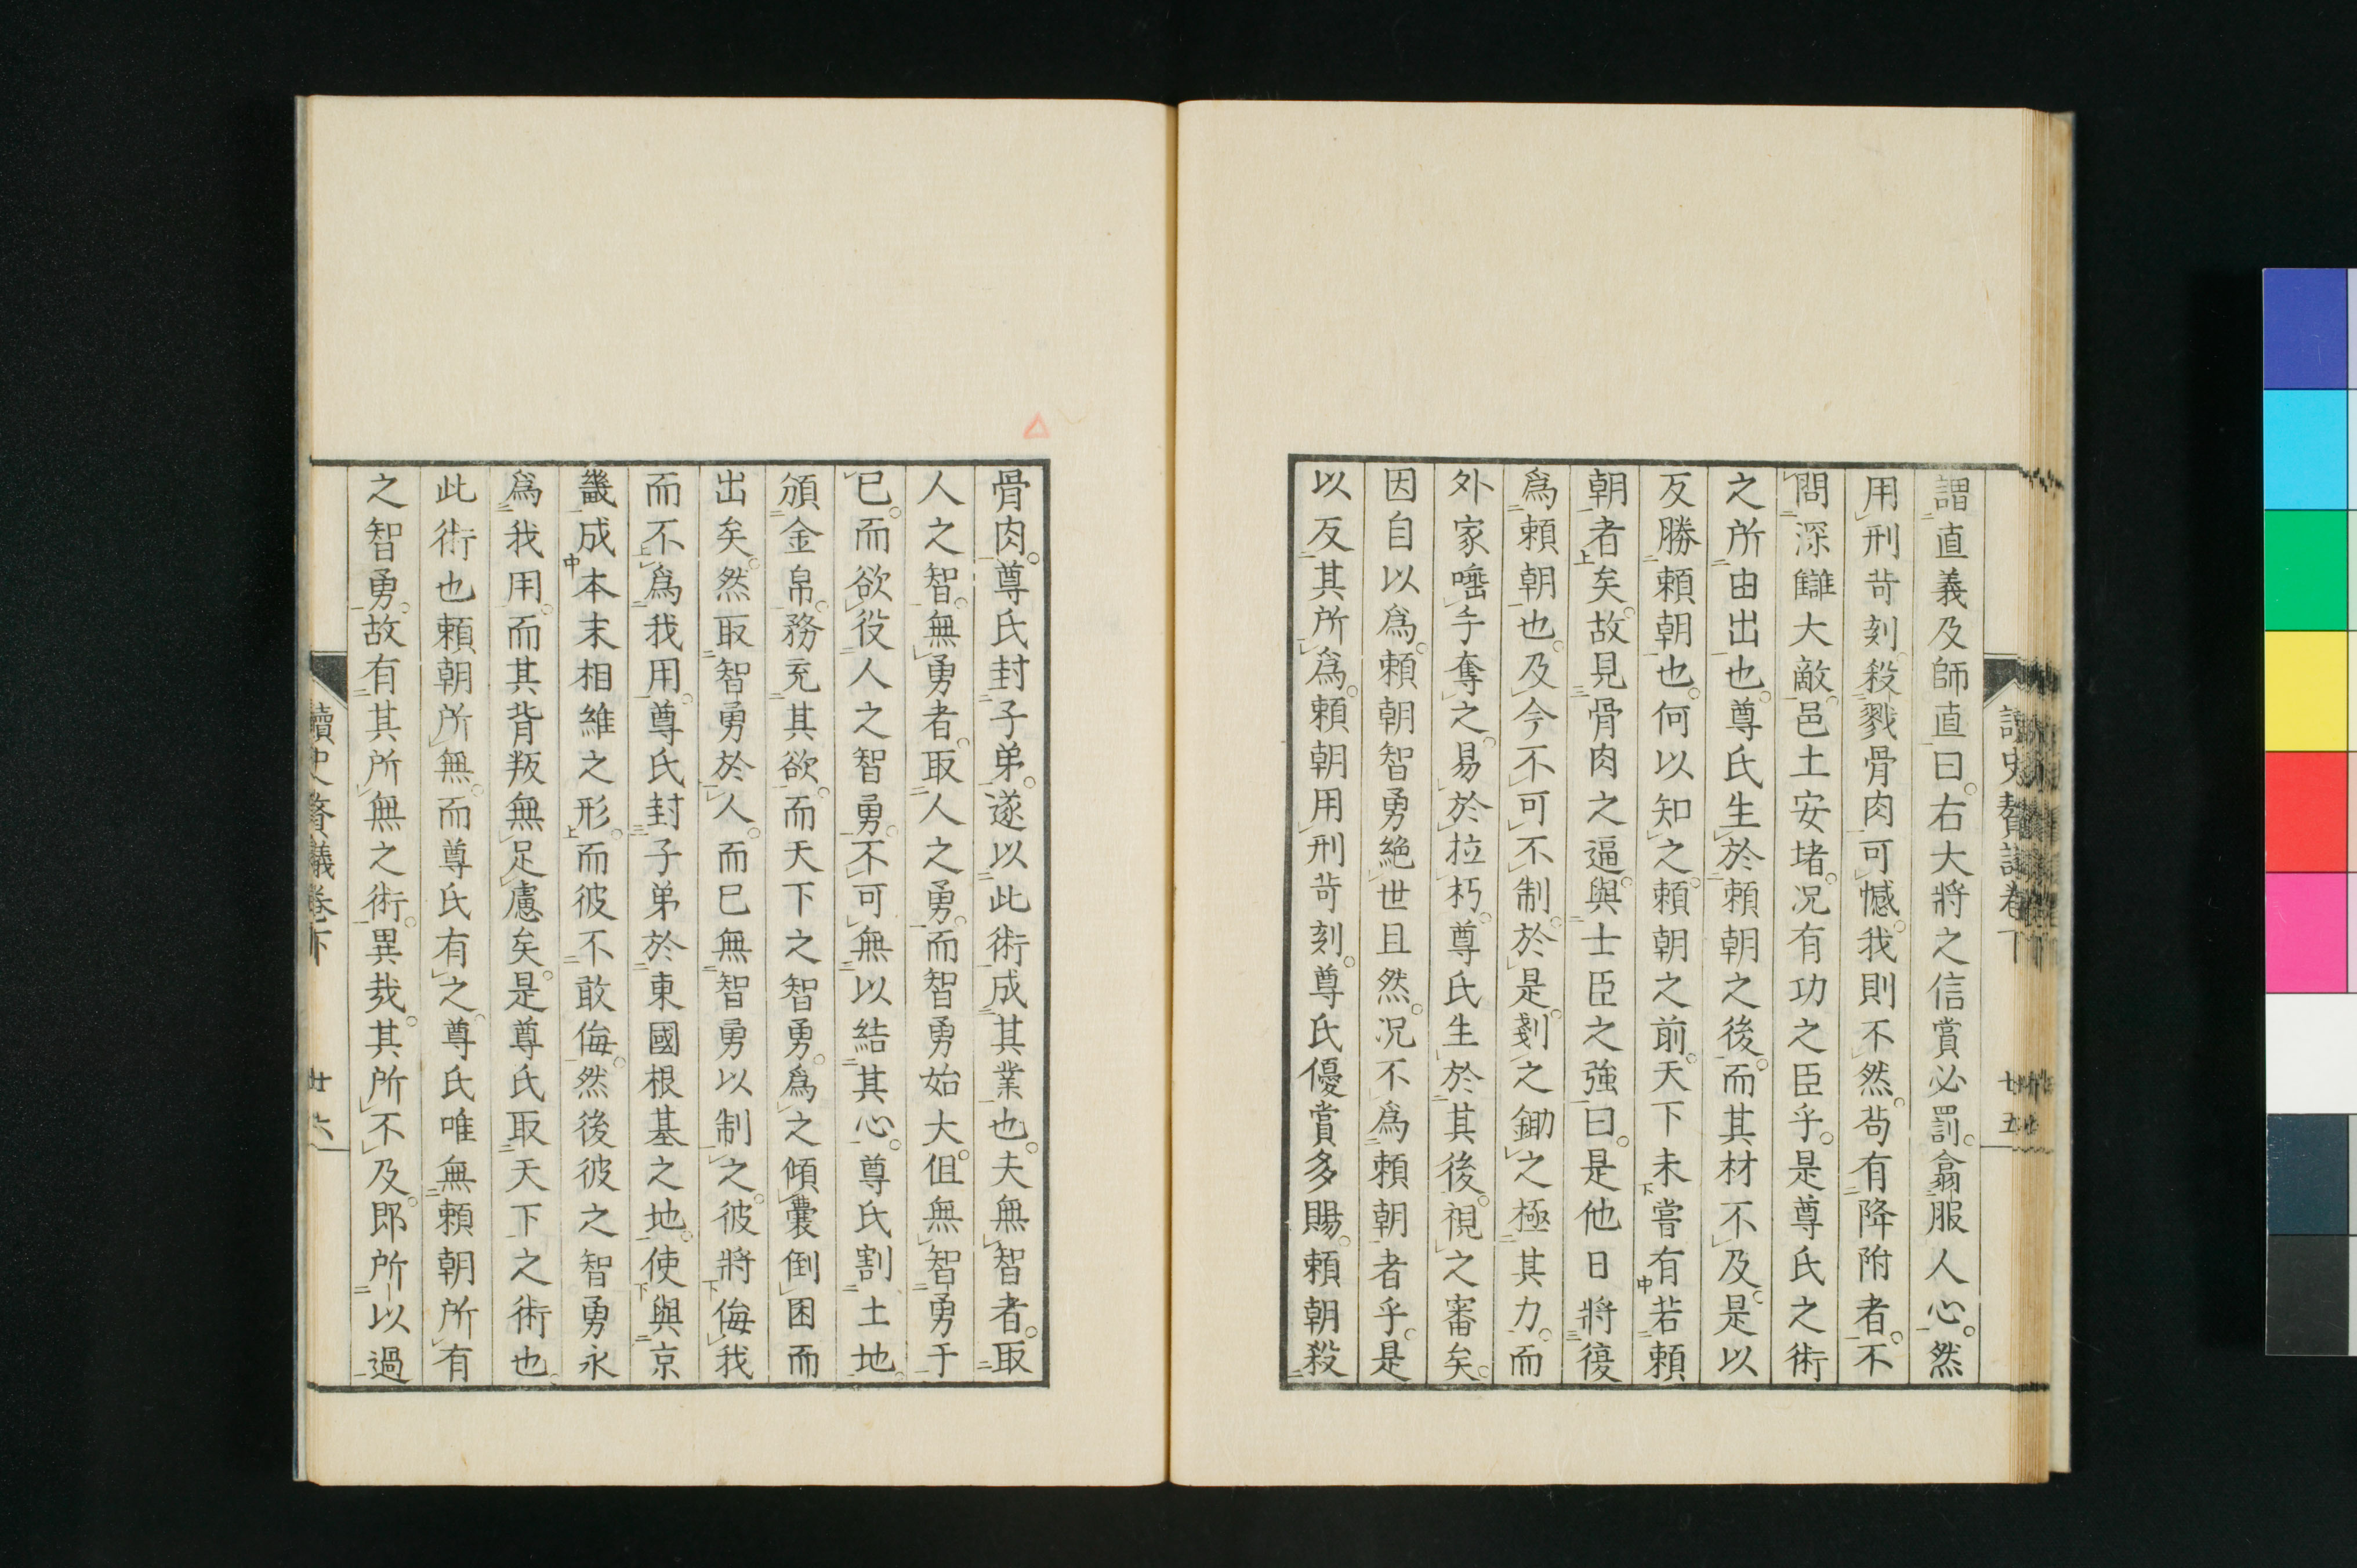 謂直義及師直曰。右大將之信賞必罰。翕服人心。然
用刑苛刻。殺戮骨肉可憾。我則不然。苟有降附者。不
問深讎大敵。邑土安堵。况有功之臣乎。是尊氏之術
之所由出也。尊氏生於賴朝之後。而其材不及。是以
反勝賴朝也。何以知之。賴朝之前。天下未嘗有若賴
朝者矣。故見骨肉之逼。與士臣之強曰。是他日將復
爲賴朝也。及今不可不制。於是。剗之鋤之極其力。而
外家唾手奪之。易於拉朽。尊氏生於其後。視之審矣。
因自以爲。賴朝智勇絶世且然。况不爲賴朝者乎。是
以反其所爲。賴朝用刑苛刻。尊氏優賞多賜。賴朝殺
廿五
骨肉。尊氏封子弟。遂以此術成其業也。夫無智者。取
人之智。無勇者。取人之勇。而智勇始大。但無智勇于
已。而欲役人之智勇。不可無以結其心。尊氏割土地。
頒金帛。務充其欲。而天下之智勇。爲之傾囊倒囷而
出矣。然取智勇於人。而已無智勇以制之。彼將侮我
而不爲我用。尊氏封子弟於東國根基之地。使與京
畿成本末相維之形。而彼不敢侮。然後彼之智勇永
爲我用。而其背叛無足慮矣。是尊氏取天下之術也。
此術也賴朝所無。而尊氏有之。尊氏唯無賴朝所有
之智勇。故有其所無之術。異哉。其所不及。即所以過
讀史贅議卷下
廿六